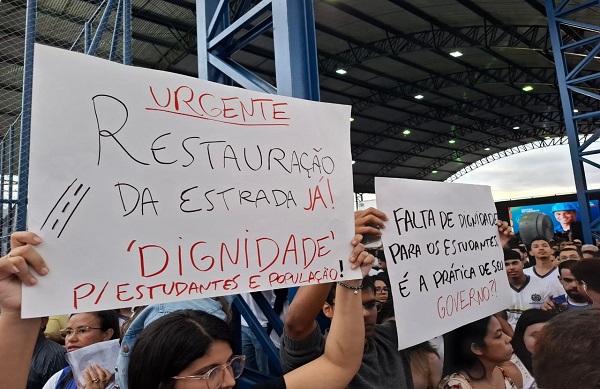 URGENTE
RESTAURAÇÃO
DA ESTRADA JÁ!
'DIGNIDADE'
P/ ESTUDANTES E POPULAÇÃO!
FALTA DE DIGNIDADE
PARA OS ESTUDANTES
É A PRÁTICA DE SEU
GOVERNO?!